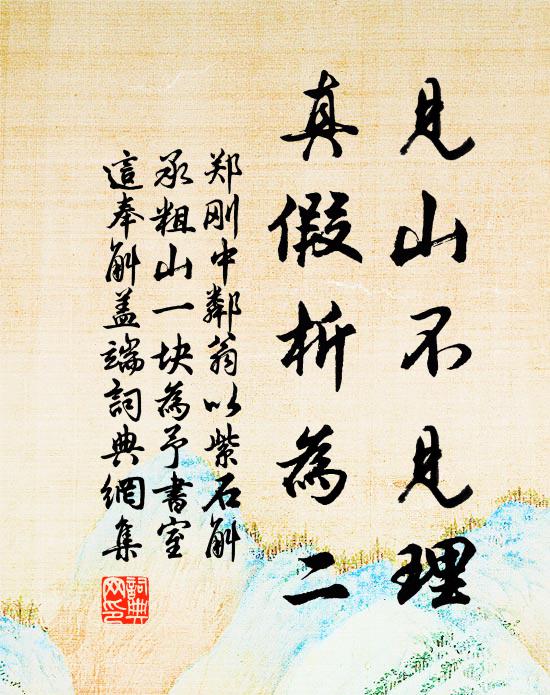 見山不見理
真假析為二
郑刚中鄰翁以紫石斛
承粗山一块為予書室
這奉斛盖端詞典網集
詞典
网印